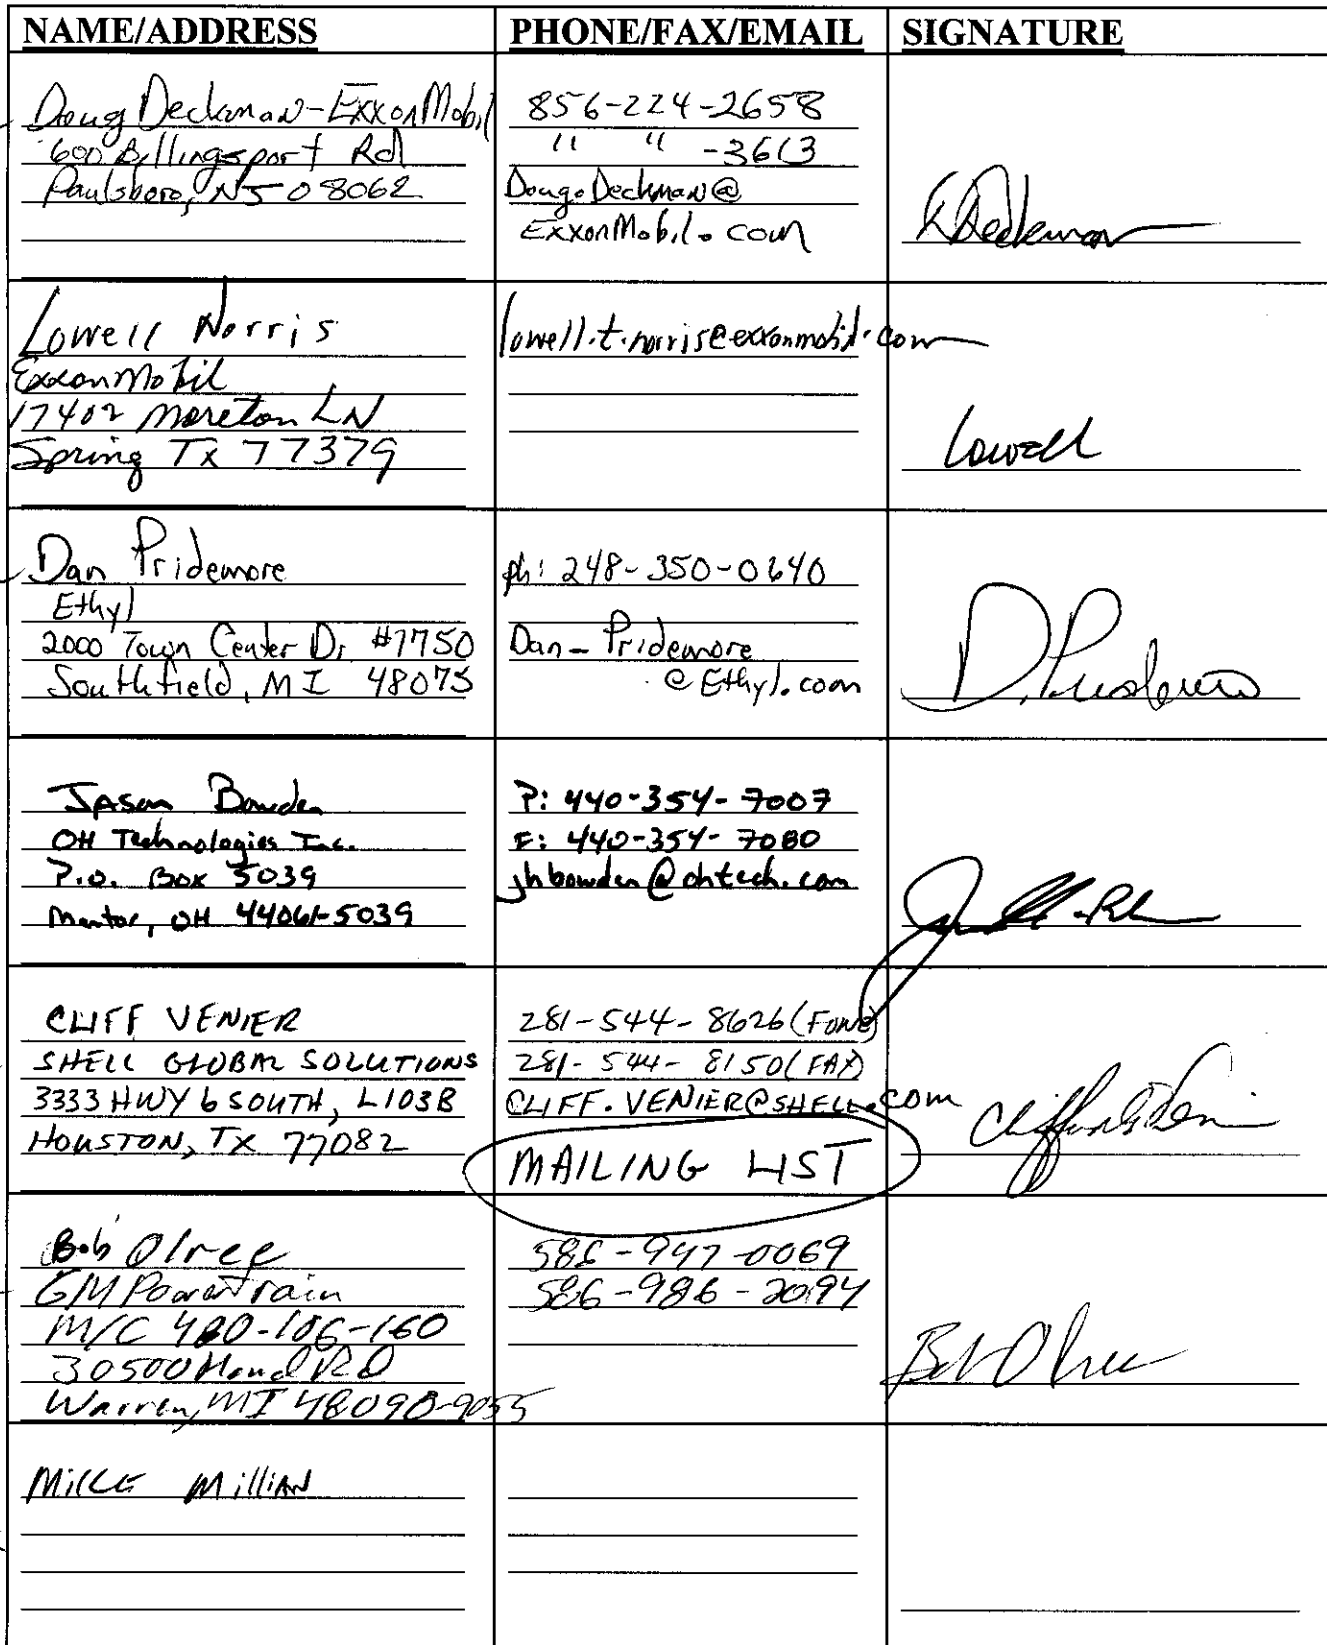 NAME/ADDRESS PHONE/FAX/EMAIL SIGNATURE
Doug Deckman-ExxonMobil
600 Billingsport Rd
Paulsboro, NJ 08062
856-224-2658
" " -3613
Doug.Deckman@
ExxonMobil.com
Lowell Norris
ExxonMobil
17402 Moreton LN
Spring Tx 77379
lowell.t.norris@exxonmobil.com
Lowell
Dan Pridemore
Ethyl
2000 Town Center Dr #1750
Southfield, MI 48075
ph: 248-350-0640
Dan_Pridemore
@Ethyl.com
D. Pridemore
Jason Bowden
OH Technologies Inc.
P.O. Box 5039
Mentor, OH 44061-5039
P: 440-354-7007
F: 440-354-7080
jhbowden@ohtech.com
CLIFF VENIER
SHELL GLOBAL SOLUTIONS
3333 HWY 6 SOUTH, L103B
HOUSTON, TX 77082
281-544-8626 (FONE)
281-544-8150 (FAX)
CLIFF.VENIER@SHELL.COM
MAILING LIST
Bob Olree
GM Powertrain
M/C 480-106-160
30500 Mound Rd
Warren, MI 48090-9055
586-947-0069
586-986-2094
Bob Olree
Mike Millian